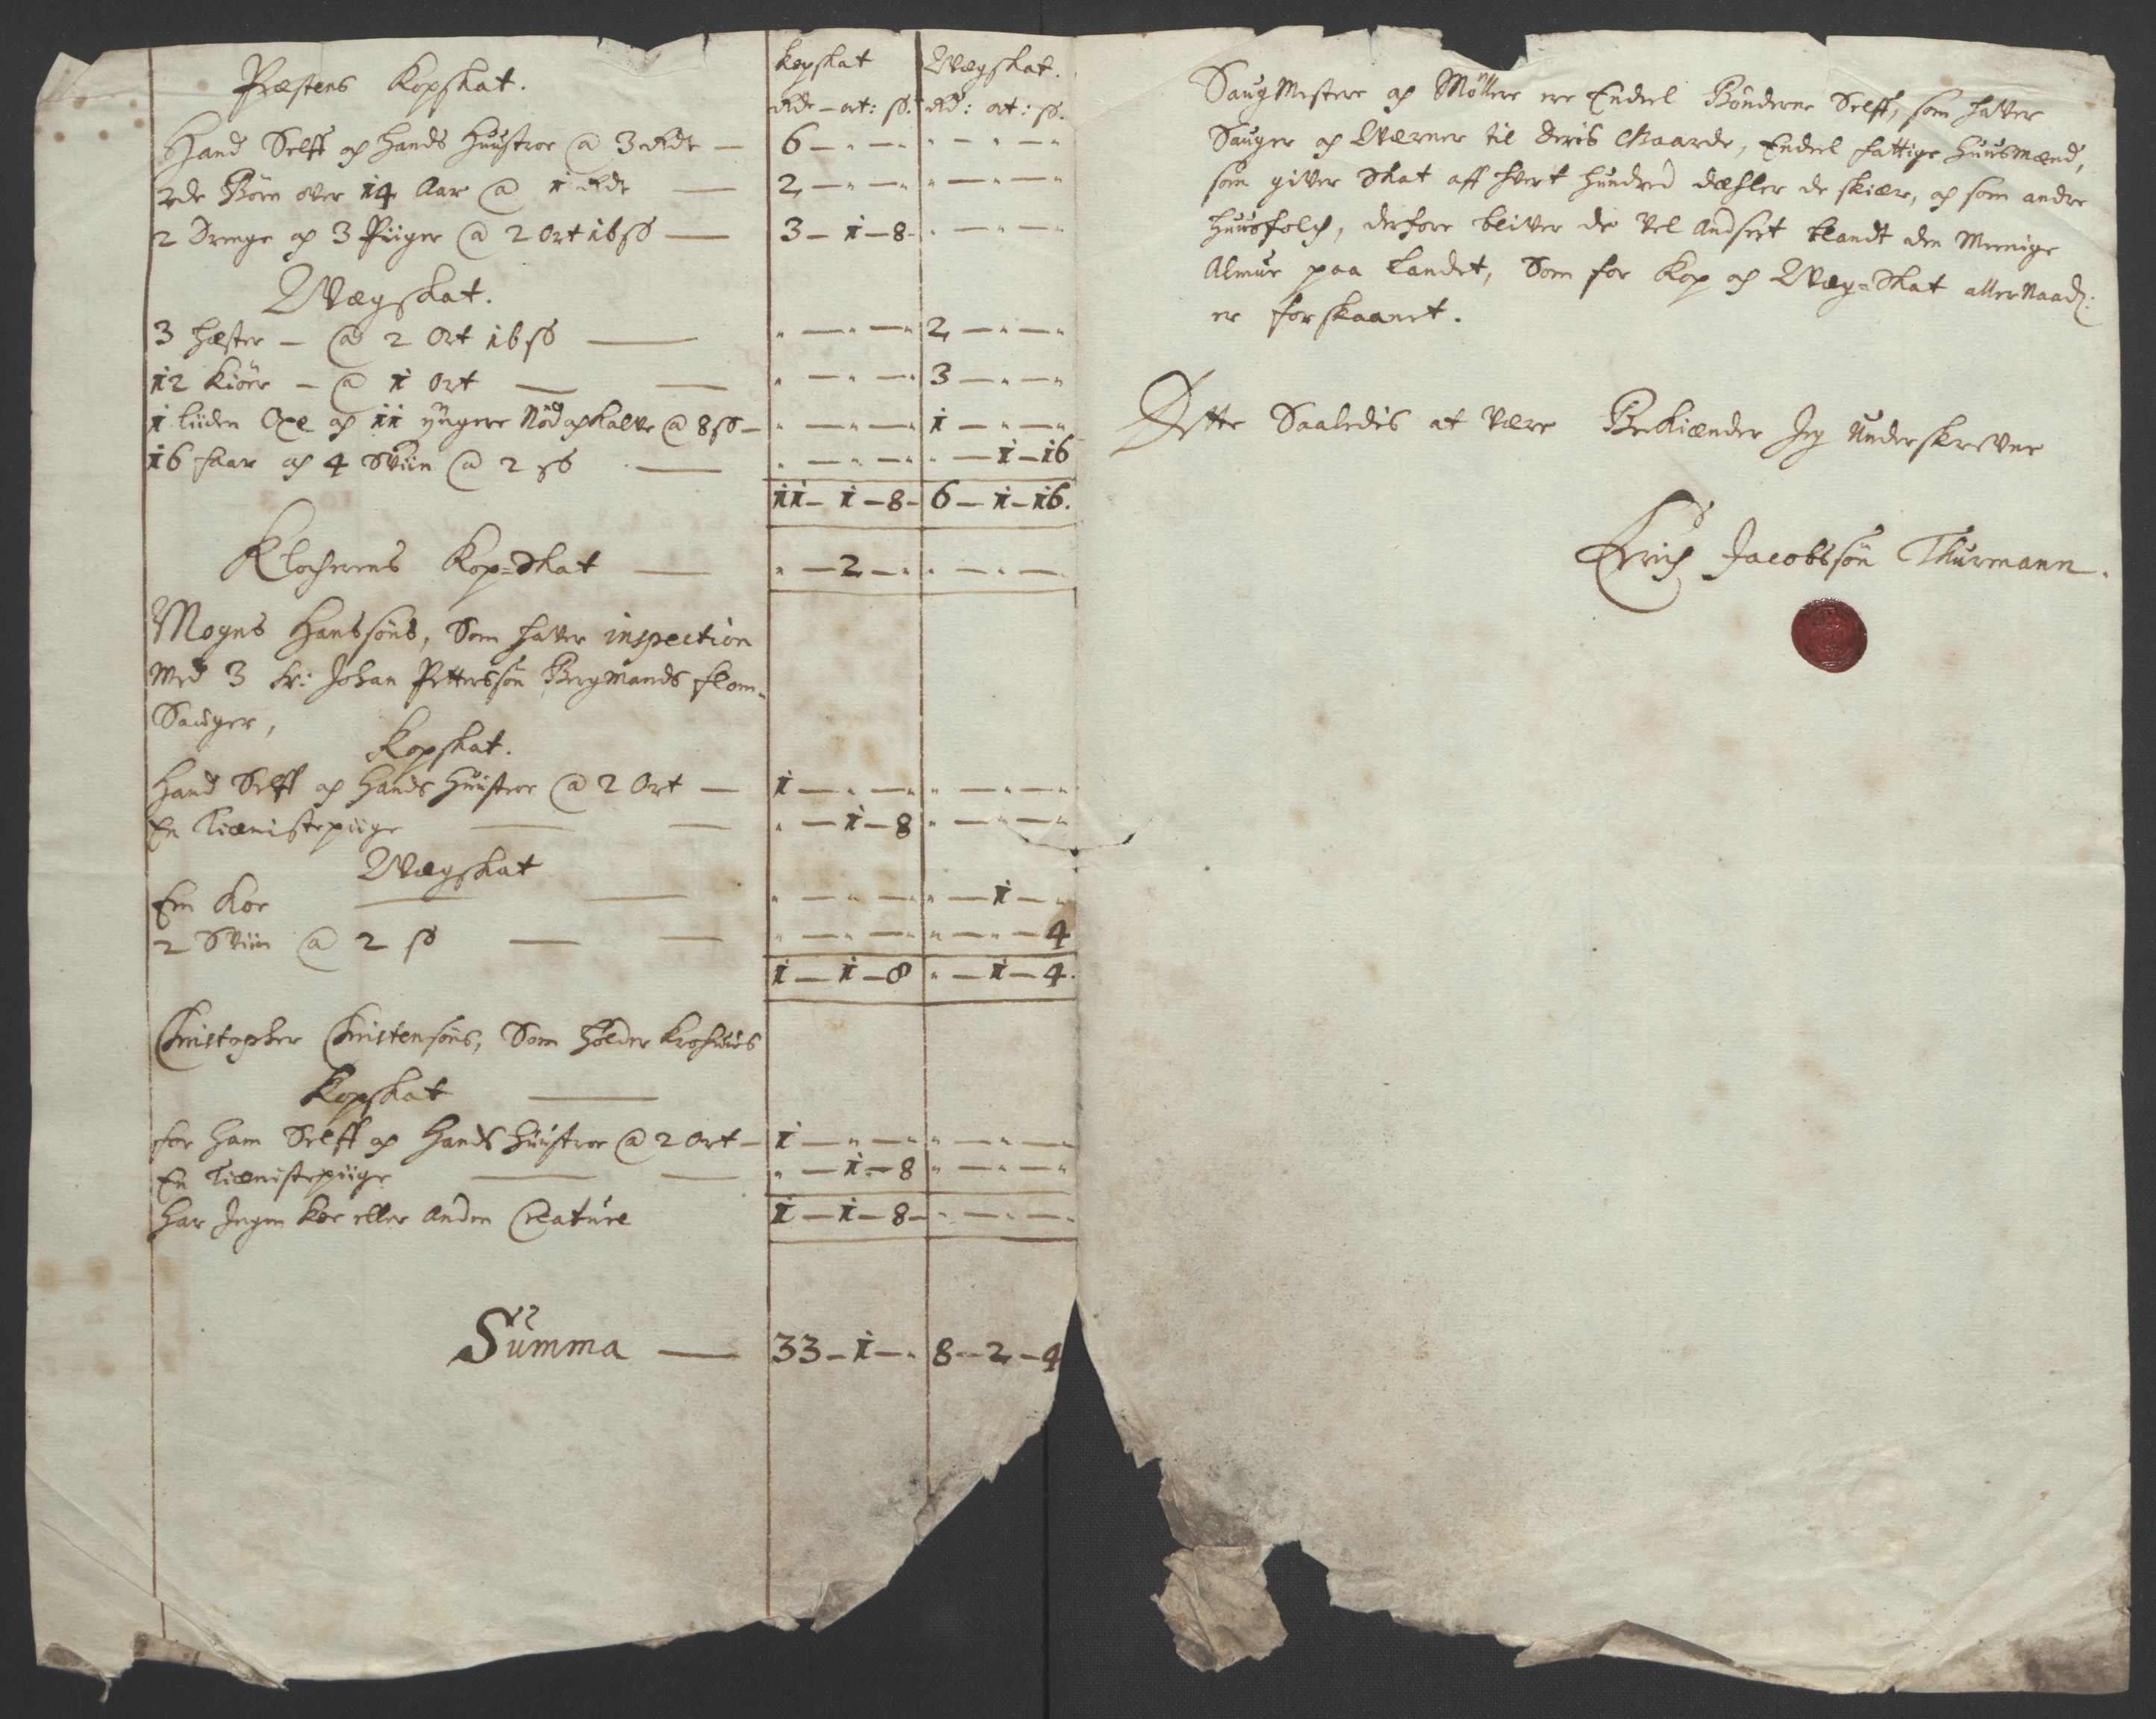 Kopskat Qvægskat.
Rdr – ort: ß. Rd: ort: ß.
Præstens Kopskat.
Hand Selff og Hands Huustroe @ 3 Rdr — 6 — " — " " — " — "
2de Børn over 14 Aar @ 1 Rdr — 2 — " — " " — " — "
2 Drenge og 3 Piiger @ 2 Ort 16 ß — 3 – 1 – 8 " — " — "
Qvægskat.
3 Hæster – @ 2 Ort 16 ß — " — " — " 2 — " — "
12 Kiöer – @ 1 Ort — " — " — " 3 — " — "
1 liiden Oxe og 11 yngere Nød og Kalve @ 8 ß – " — " — " 1 — " — "
16 faar og 4 Sviin @ 2 ß — " — " — " " — 1 – 16
11 – 1 – 8 – 6 – 1 – 16.
Klocherens Kop=Skat — " – 2 – " " — " — "
Mogns Hanssøns, Som haver inspection
Med 3 Sr: Johan Petterssøn Bergmands flom=
Sauger,
Kopskat.
Hand Selff og Hands Huustroe @ 2 Ort — 1 — " — " " — " — "
En Tiænistepiige — " – 1 – 8 " — " — "
Qvægskat
Een Koe — " — " — " " – 1 – "
2 Sviin @ 2 ß — " — " — " " — " – 4
1 – 1 – 8 " – 1 – 4.
Christopher Christensøns, Som holder Krohuus
Kopskat —
for Ham Selff og Hands Huustroe @ 2 Ort – 1 — " — " " — " — "
En Tiænistepiige — " – 1 – 8 " — " — "
Har Ingen Koe eller Anden Creature 1 – 1 – 8 – " — " — "
Summa — 33 – 1 – " 8 – 2 – 4
Saugmestere og Møllere ere Endeel Bønderne Selff, som haver
Sauger og Qværner til deris Gaarde, Endeel fattige Huusmænd,
som giver Skat aff hvert hundred dæhler de skiær, og som andre
Huusfolch, derfore bliver de vel Andseet blandt den Meenige
Almue paa Landet, Som for Kop og Qvæg=Skat allernaad:
er forskaanet.
Dette Saaledis at være Bekiænder Jeg Underskrevne
Erich Jacobssøn Thurmann.